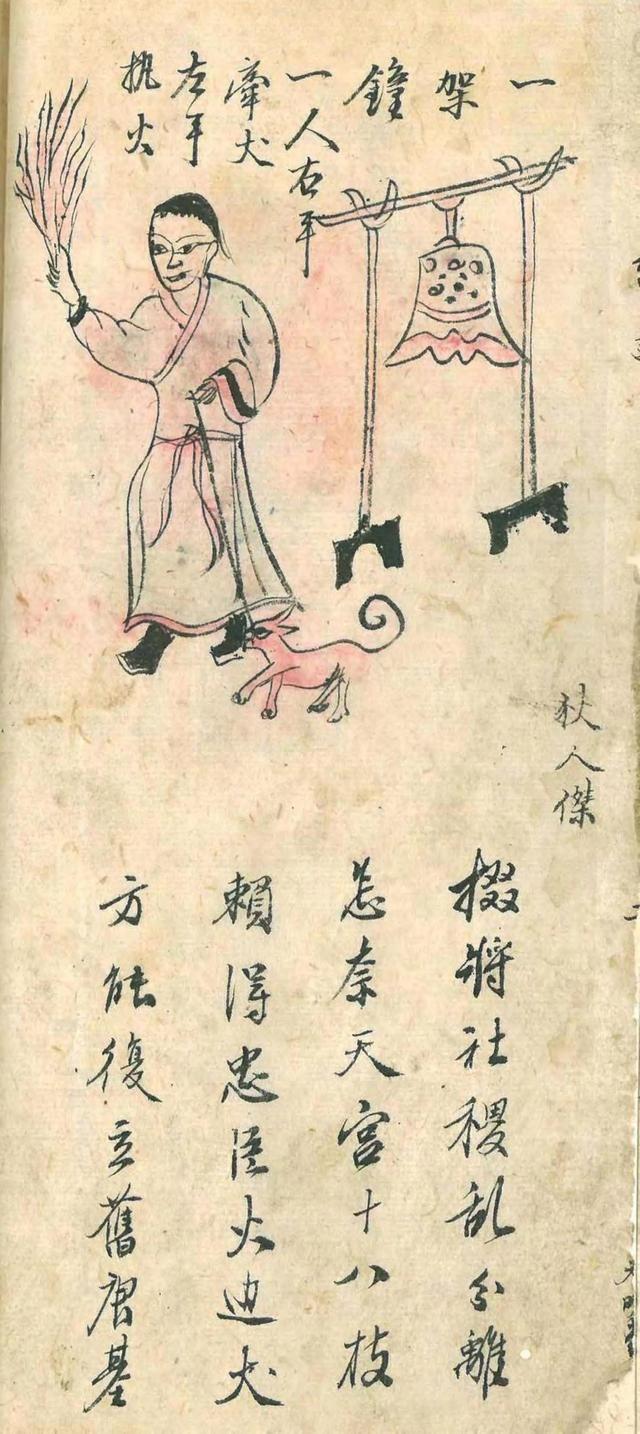 一架鐘
一人右手
牽犬
左手
执火
狄人傑
掇將社稷乱分離
怎奈天宮十八枝
賴得忠臣火边犬
方能復立舊唐基